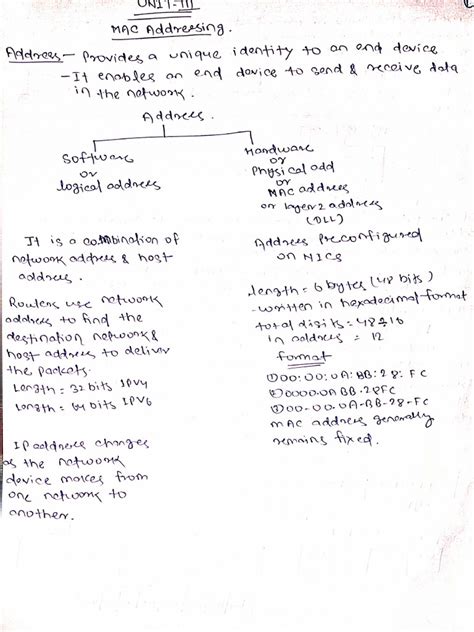 UNIT-III
MAC Addressing.
Address - Provides a unique identity to an end device
- It enables an end device to send & receive data
in the network.
Address.
Software
or
logical address
Hardware
or
Physical add
or
MAC address
or layer 2 address
(DLL)
It is a combination of
network address & host
address.
Routers use network
address to find the
destination network &
host address to deliver
the packets.
Length = 32 bits IPV4
Length = 64 bits IPV6
IP address changes
as the network
device moves from
one network to
another.
Address Preconfigured
on NICS
length = 6 bytes (48 bits)
-written in hexadecimal format
total digits = 48
in address = 12
format
① 00:00:0A:BB:28:FC
② 0000.0ABB.28FC
③ 00-00-0A-BB-28-FC
MAC address generally
remains fixed.